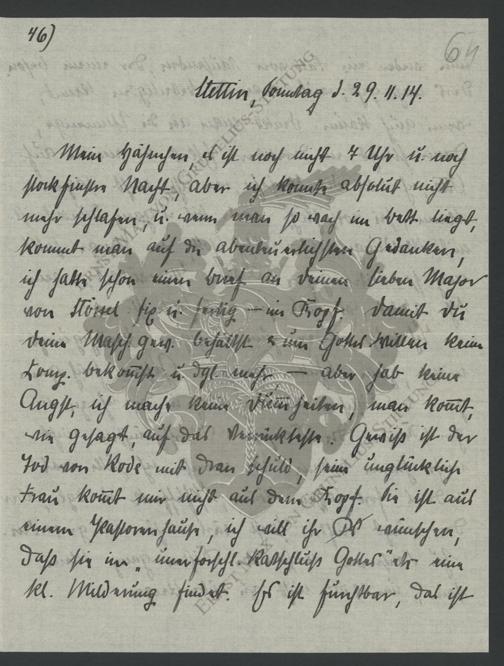 46)
64
Stettin, Sonntag d. 29.11.14.
Mein Hähnchen, es ist noch nicht 7 Uhr u. noch
stockfinstre Nacht, aber ich konnte absolut nicht
mehr schlafen, u. wenn man so wach im bett liegt,
kommt man auf die abenteuerlichsten Gedanken,
ich hatte schon einen brief an deinen lieben Major
von Stössel fix u. fertig – im Kopf. damit du
deine Masch.gew. behältst u. um Gottes willen keine
Komp. bekom̄st u. dgl. mehr – aber hab keine
Angst, ich mache keine Dum̄heiten, man kom̄t,
wie gesagt, auf das Verrückteste. Gewiss ist der
Tod von Rode mit dran schuld, seine unglückliche
Frau kom̄t mir nicht aus dem Kopf. Sie ist aus
einem Pastorenhause, ich will ihr wünschen,
dass sie im "unerforschl. Ratschluss Gottes" eine
kl. Milderung findet. Es ist furchtbar, das ist